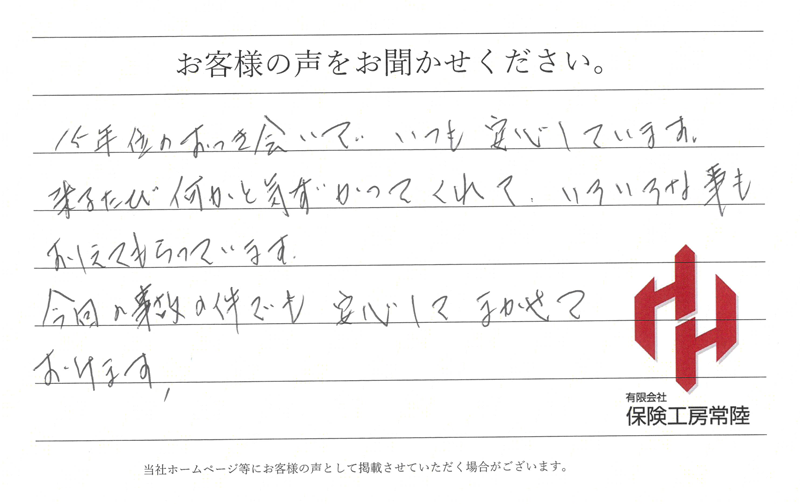 お客様の声をお聞かせください。
15年位のおつき会いで、いつも安心しています。
来るたび何かと気ずかってくれて、いろいろな事も
おしえてもらっています。
今回の事故の件でも安心してまかせて
おけます,
有限会社
保険工房常陸
当社ホームページ等にお客様の声として掲載させていただく場合がございます。